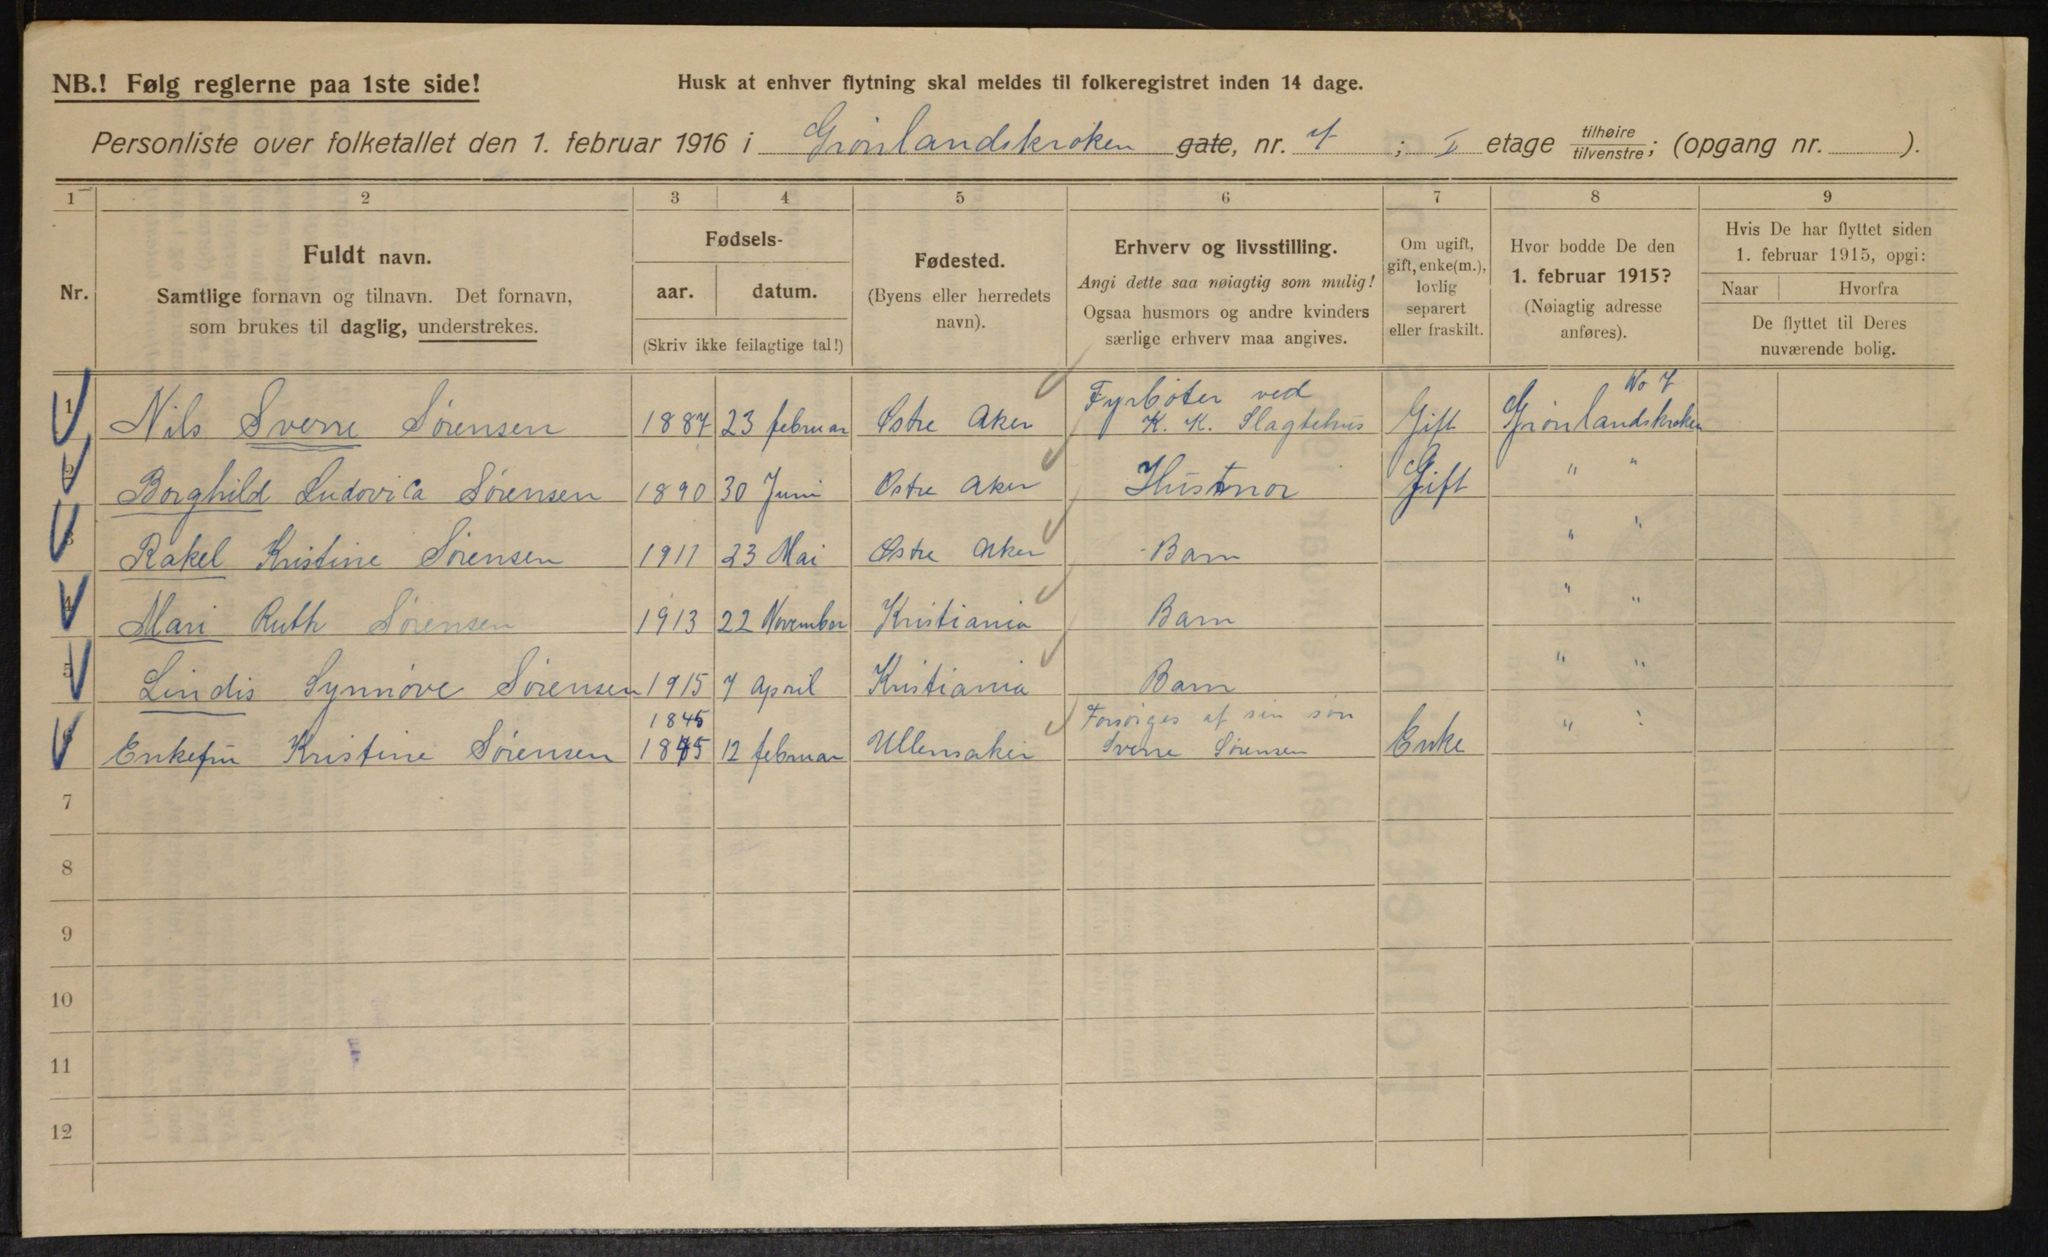 NB.! Følg reglerne paa 1ste side!
Husk at enhver flytning skal meldes til folkeregistret inden 14 dage.
Personliste over folketallet den 1. februar 1916 i Grønlandskroken gate, nr. 7; I etage tilhøire/tilvenstre; (opgang nr. ).
1 2 3 4 5 6 7 8 9
Nr.
Fuldt navn.
Samtlige fornavn og tilnavn. Det fornavn,
som brukes til daglig, understrekes.
Fødsels-
aar. datum.
(Skriv ikke feilagtige tal!)
Fødested.
(Byens eller herredets
navn).
Erhverv og livsstilling.
Angi dette saa nøiagtig som mulig!
Ogsaa husmors og andre kvinders
særlige erhverv maa angives.
Om ugift,
gift, enke(m.),
lovlig
separert
eller fraskilt.
Hvor bodde De den
1. februar 1915?
(Nøiagtig adresse
anføres).
Hvis De har flyttet siden
1. februar 1915, opgi:
Naar Hvorfra
De flyttet til Deres
nuværende bolig.
Fyrbøter ved No 7
1 Nils Sverre Sørensen 1887 23 februar Østre Aker K. K. Slagtehus Gift Grønlandskroken
2 Borghild Ludovica Sørensen 1890 30 Juni Østre Aker Hustmor Gift " "
3 Rakel Kristine Sørensen 1911 23 Mai Østre Aker Barn " "
4 Mari Ruth Sørensen 1913 22 November Kristiania Barn " "
5 Lindis Synnøve Sørensen 1915 7 April Kristiania Barn " "
1845 Forsørges af sin søn
6 Enkefru Kristine Sørensen 1845 12 februar Ullensaker Sverre Sørensen Enke " "
7
8
9
10
11
12